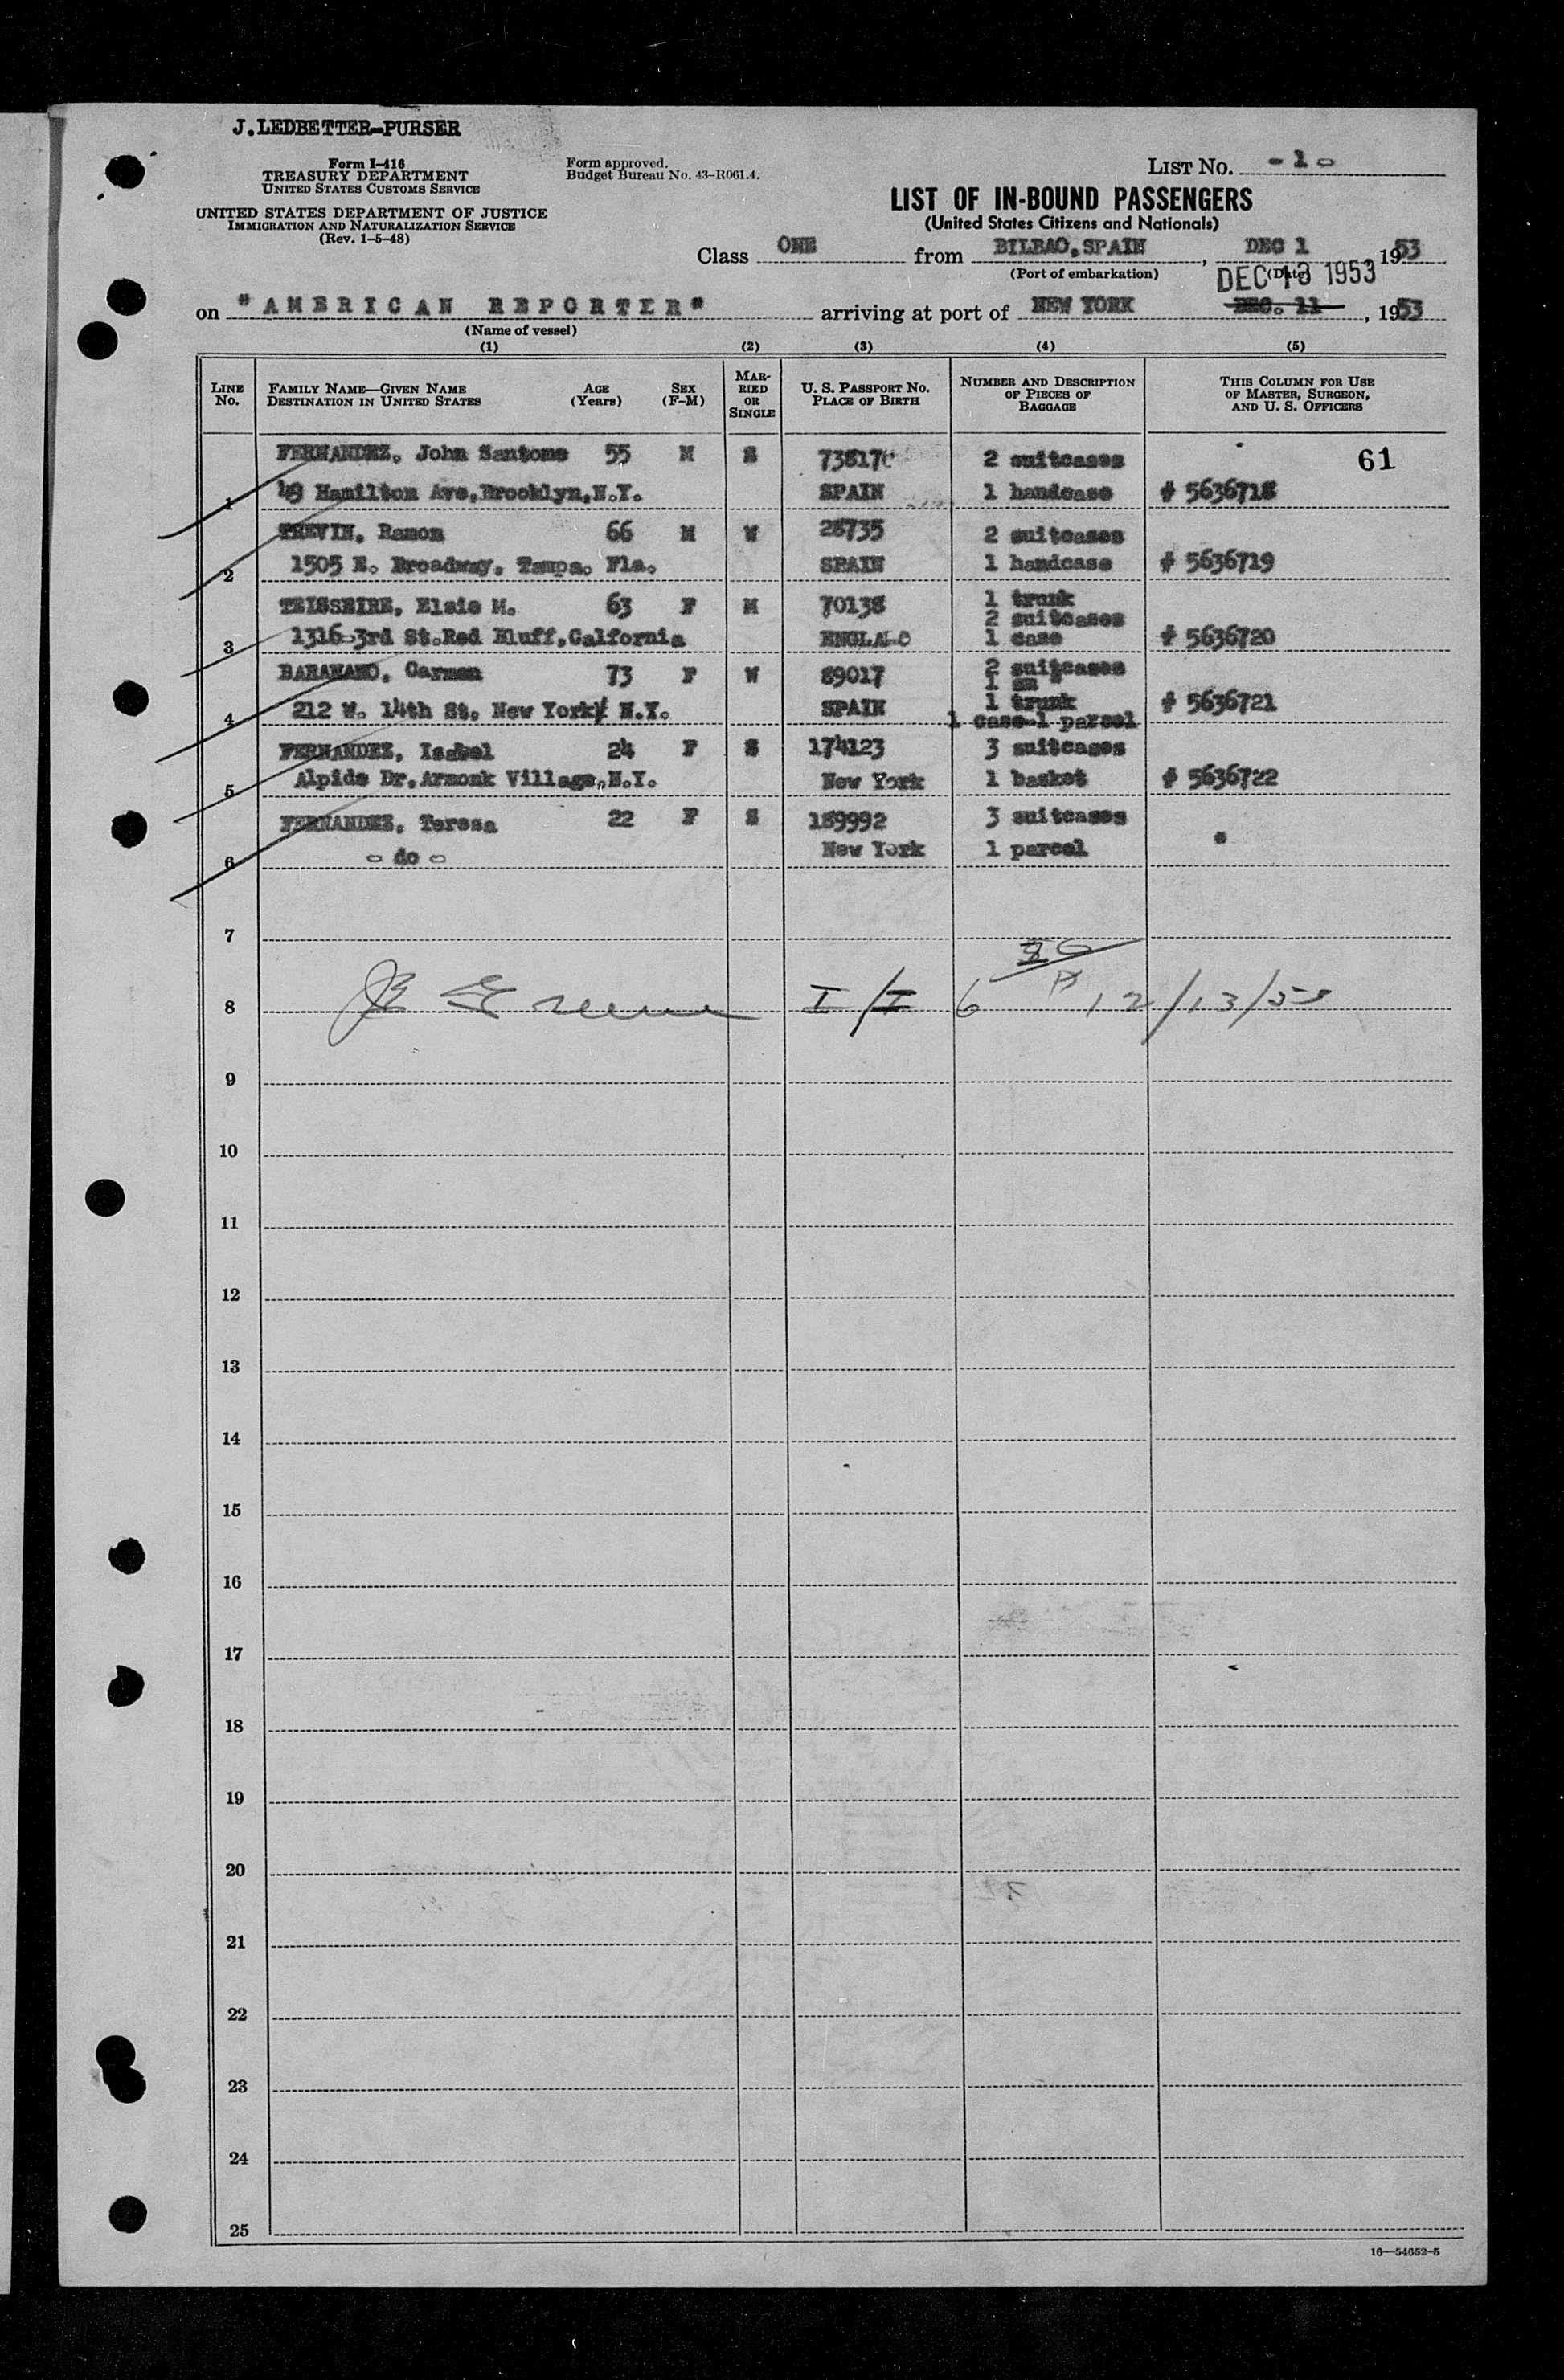 J.LEDBETTER-PURSER
Form I-416
TREASURY DEPARTMENT
UNITED STATES CUSTOMS SERVICE
Form approved.
Budget Bureau No. 43-R061.4.
LIST NO. -1-
UNITED STATES DEPARTMENT OF JUSTICE
IMMIGRATION AND NATURALIZATION SERVICE
(Rev. 1-5-48)
LIST OF IN-BOUND PASSENGERS
(United States Citizens and Nationals)
Class ONE from BILBAO, SPAIN, DEC 1, 1953
(Port of embarkation) (Date)
DEC 13 1953
on "AMERICAN REPORTER" arriving at port of NEW YORK DEC. 11, 1953
(Name of vessel)
(1) (2) (3) (4) (5)
LINE NO. FAMILY NAME—GIVEN NAME DESTINATION IN UNITED STATES AGE (Years) SEX (F-M) MARRIED OR SINGLE U. S. PASSPORT NO. PLACE OF BIRTH NUMBER AND DESCRIPTION OF PIECES OF BAGGAGE THIS COLUMN FOR USE OF MASTER, SURGEON, AND U. S. OFFICERS
FERNANDEZ, John Santome 55 M S 2 suitcases 61
1 49 Hamilton Ave,Brooklyn,N.Y. SPAIN 1 handcase # 5636718
TREVIN, Ramon 66 M W 28735 2 suitcases
2 1505 E. Broadway, Tampa. Fla. SPAIN 1 handcase # 5636719
TEISSEIRE, Elsie M. 63 F M 70138 1 trunk
2 suitcases
3 1316-3rd St.Red Bluff,Calfornia ENGLAND 1 case # 5636720
BARANANO, Carmen 73 F W 89017 2 suitcases
1 "
4 212 W. 14th St. New York, N.Y. SPAIN 1 trunk # 5636721
1 case-1 parcel
FERNANDEZ, Isabel 24 F S 174123 3 suitcases
5 Alpide Dr.Armonk Village,N.Y. New York 1 basket # 5636722
FERNANDEZ, Teresa 22 F S 189992 3 suitcases
6 - do - New York 1 parcel "
7
8 I/I 6 12/13/53
9
10
11
12
13
14
15
16
17
18
19
20
21
22
23
24
25
16—54652-5